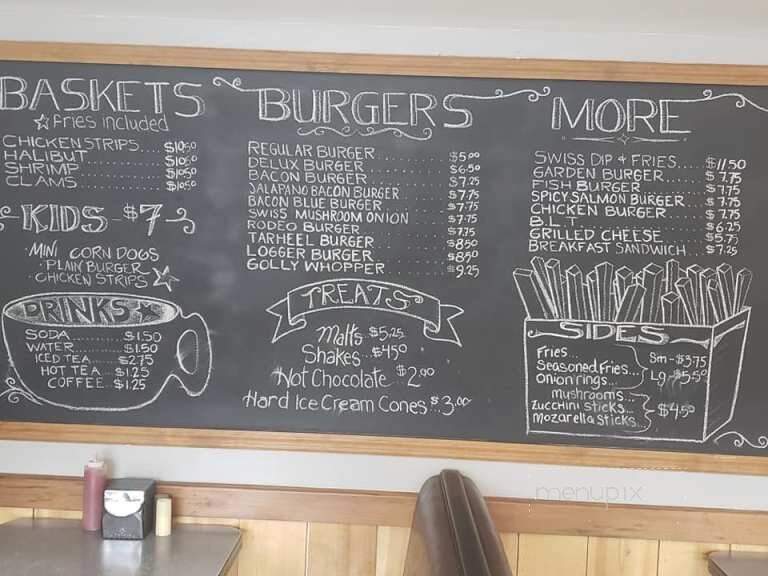 BASKETS
☆ fries included
CHICKEN STRIPS.... $10.50
HALIBUT......... $10.50
SHRIMP........... $10.50
CLAMS............ $10.50
KIDS - $7 -
MINI CORN DOGS
· PLAIN BURGER
· CHICKEN STRIPS
DRINKS
SODA........... $1.50
WATER......... $1.50
ICED TEA..... $2.75
HOT TEA.... $1.25
COFFEE.... $1.25
BURGERS
REGULAR BURGER.......... $5.00
DELUX BURGER............ $6.50
BACON BURGER............ $7.25
JALAPANO BACON BURGER..... $7.75
BACON BLUE BURGER........ $7.75
SWISS MUSHROOM ONION..... $7.75
RODEO BURGER............ $7.75
TARHEEL BURGER.......... $8.50
LOGGER BURGER........... $8.50
GOLLY WHOPPER.......... $9.25
TREATS
Malts... $5.25
Shakes... $4.50
Hot Chocolate... $2.00
Hard Ice Cream Cones... $3.00
MORE
SWISS DIP & FRIES.... $11.50
GARDEN BURGER........ $7.75
FISH BURGER.......... $7.75
SPICY SALMON BURGER... $7.75
CHICKEN BURGER....... $7.75
B.L.T................ $6.25
GRILLED CHEESE....... $5.75
BREAKFAST SANDWICH... $7.25
SIDES
Fries...
Seasoned Fries... Sm - $3.75
Onion rings... Lg - $5.50
mushrooms...
Zucchini Sticks... $4.50
Mozarella Sticks...
menupix